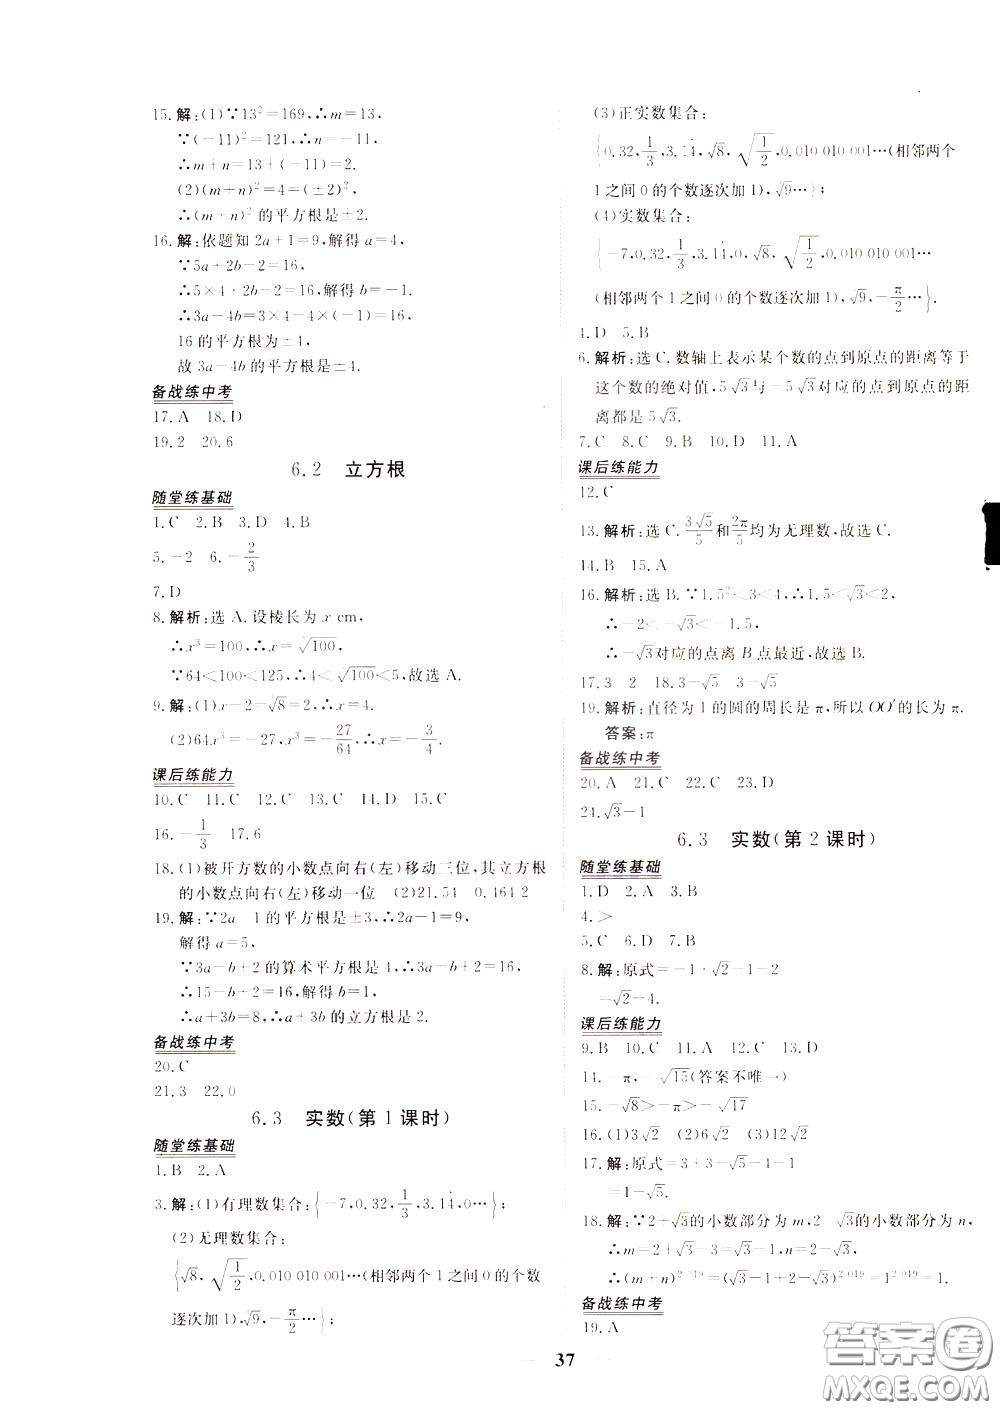 15.解:(1)∵13²=169,∴m=13,
∵(-11)²=121,∴n=-11,
∴m+n=13+(-11)=2.
(2)(m+n)²=4=(±2)²,
∴(m+n)²的平方根是±2.
16.解:依题知2a+1=9,解得a=4,
∵5a+2b-2=16,
∴5×4+2b-2=16,解得b=-1.
∴3a-4b=3×4-4×(-1)=16,
16的平方根为±4,
故3a-4b的平方根是±4.
备战练中考
17.A 18.D
19.2 20.6
6.2 立方根
随堂练基础
1.C 2.B 3.D 4.B
5.-2 6.-2/3
7.D
8.解析:选A.设棱长为x cm,
∴x³=100,∴x=∛100,
∵64<100<125,∴4<∛100<5,故选A.
9.解:(1)x-2=∛8=2,∴x=4.
(2)64x³=-27,x³=-27/64,∴x=-3/4.
课后练能力
10.C 11.C 12.C 13.C 14.D 15.C
16.-1/3 17.6
18.(1)被开方数的小数点向右(左)移动三位,其立方根
的小数点向右(左)移动一位 (2)21.54 0.464 2
19.解:∵2a-1的平方根是±3,∴2a-1=9,
解得a=5,
∵3a-b+2的算术平方根是4,∴3a-b+2=16,
∴15-b+2=16,解得b=1,
∴a+3b=8,∴a+3b的立方根是2.
备战练中考
20.C
21.3 22.0
6.3 实数(第1课时)
随堂练基础
1.B 2.A
3.解:(1)有理数集合:{-7,0.32,1/3,3.14,0…};
(2)无理数集合:
{√8,√(1/2),0.010 010 001…(相邻两个1之间0的个数
逐次加1),∛9,-π/2…};
(3)正实数集合:
{0.32,1/3,3.14,√8,√(1/2),0.010 010 001…(相邻两个
1之间0的个数逐次加1),∛9…};
(4)实数集合:
{-7,0.32,1/3,3.14,0,√8,√(1/2),0.010 010 001…
(相邻两个1之间0的个数逐次加1),∛9,-π/2…}.
4.D 5.B
6.解析:选C.数轴上表示某个数的点到原点的距离等于
这个数的绝对值,5√3与-5√3对应的点到原点的距
离都是5√3.
7.C 8.C 9.B 10.D 11.A
课后练能力
12.C
13.解析:选C.3√5/5和2π/5均为无理数,故选C.
14.B 15.A
16.解析:选B.∵1.5²<3<4,∴1.5<√3<2,
∴-2<-√3<-1.5,
∴-√3对应的点离B点最近,故选B.
17.3 2 18.3-√5 3-√5
19.解析:直径为1的圆的周长是π,所以OO′的长为π.
答案:π
备战练中考
20.A 21.C 22.C 23.D
24.√3-1
6.3 实数(第2课时)
随堂练基础
1.D 2.A 3.B
4.>
5.C 6.D 7.B
8.解:原式=-1+√2-1-2
=√2-4.
课后练能力
9.B 10.C 11.A 12.C 13.D
14.-π,-√15(答案不唯一)
15.-√8>-π>-√17
16.(1)3√2 (2)6√2 (3)12√2
17.解:原式=3+3-√5-4-1
=1-√5.
18.解:∵2+√3的小数部分为m,2-√3的小数部分为n,
∴m=2+√3-3=√3-1,n=2-√3,
∴(m+n)²⁰¹⁹=(√3-1+2-√3)²⁰¹⁹=1²⁰¹⁹=1.
备战练中考
19.A
37
答案圈
MXQE.COM